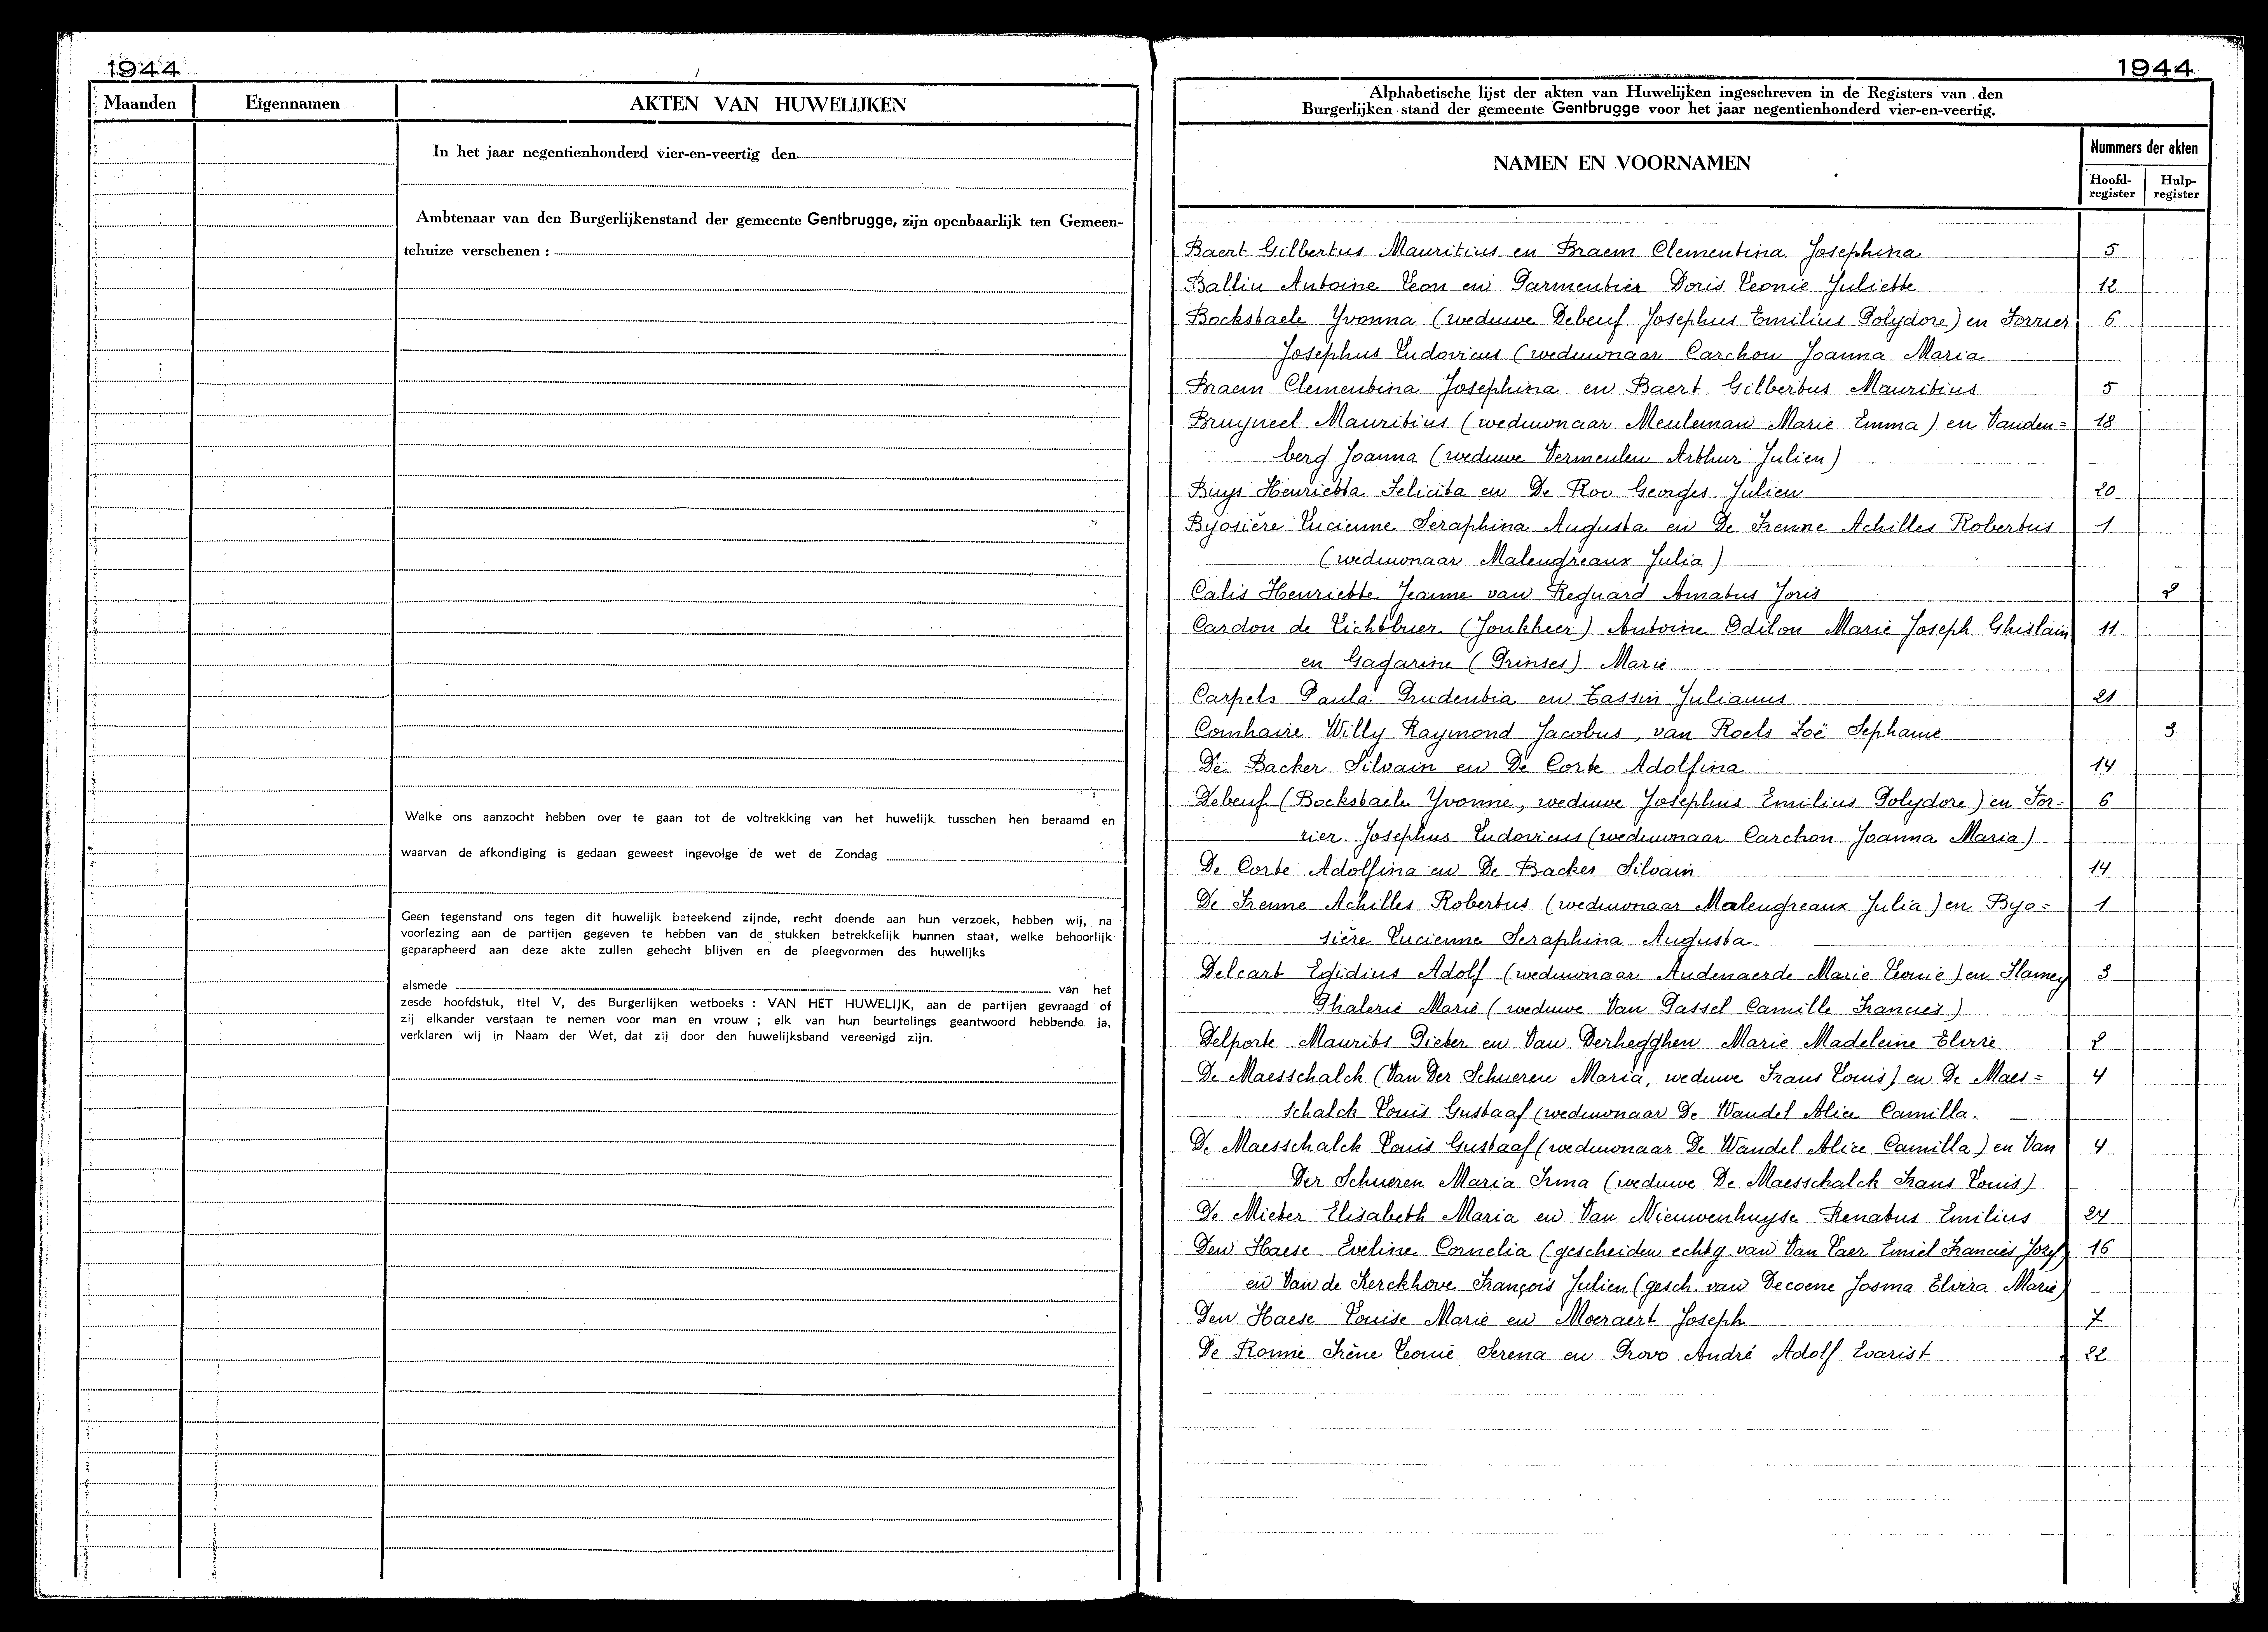 1944
Maanden
Eigennamen
AKTEN VAN HUWELIJKEN
In het jaar negentienhonderd vier-en-veertig den
Ambtenaar van den Burgerlijkenstand der gemeente Gentbrugge, zijn openbaarlijk ten Gemeen-
tehuize verschenen :
Welke ons aanzocht hebben over te gaan tot de voltrekking van het huwelijk tusschen hen beraamd en
waarvan de afkondiging is gedaan geweest ingevolge de wet de Zondag
Geen tegenstand ons tegen dit huwelijk beteekend zijnde, recht doende aan hun verzoek, hebben wij, na
voorlezing aan de partijen gegeven te hebben van de stukken betrekkelijk hunnen staat, welke behoorlijk
geparapheerd aan deze akte zullen gehecht blijven en de pleegvormen des huwelijks
alsmede van het
zesde hoofdstuk, titel V, des Burgerlijken wetboeks : VAN HET HUWELIJK, aan de partijen gevraagd of
zij elkander verstaan te nemen voor man en vrouw ; elk van hun beurtelings geantwoord hebbende ja,
verklaren wij in Naam der Wet, dat zij door den huwelijksband vereenigd zijn.
1944
Alphabetische lijst der akten van Huwelijken ingeschreven in de Registers van den
Burgerlijken stand der gemeente Gentbrugge voor het jaar negentienhonderd vier-en-veertig.
NAMEN EN VOORNAMEN
Nummers der akten
Hoofd-register
Hulp-register
Baert Gilbertus Mauritius en Braem Clementina Josephina 5
Ballin Antoine Leon en Parmentier Doris Leonie Juliette 12
Bockstaele Yvonna (weduwe Debeuf Josephus Emilius Polydore) en Forrier 6
Josephus Ludovicus (weduwnaar Carchon Joanna Maria
Braem Clementina Josephina en Baert Gilbertus Mauritius 5
Bruyneel Mauritius (weduwnaar Meuleman Marie Emma) en Vanden= 18
berg Joanna (weduwe Vermeulen Arthur Julien)
Buys Henrietta Felicita en De Roo Georges Julien 20
Byosière Lucienne Seraphina Augusta en De Frenne Achilles Robertus 1
(weduwnaar Malengreaux Julia)
Calis Henriette Jeanne van Requard Amatus Joris 2
Cardon de Lichtbuer (Jonkheer) Antoine Odilon Marie Joseph Ghislain 11
en Gagarine (Prinses) Marie
Carpels Paula Prudentia en Tassin Julianus 21
Comhaire Willy Raymond Jacobus, van Roels Zoë Sephanie 3
De Backer Silvain en De Corte Adolfina 14
Debeuf (Bockstaele Yvonne, weduwe Josephus Emilius Polydore) en For= 6
rier Josephus Ludovicus (weduwnaar Carchon Joanna Maria)
De Corte Adolfina en De Backer Silvain 14
De Frenne Achilles Robertus (weduwnaar Malengreaux Julia) en Byo= 1
sière Lucienne Seraphina Augusta
Delcart Egidius Adolf (weduwnaar Audenaerde Marie Leonie) en Flamey 3
Phalerie Marie (weduwe Van Gassel Camille Francies)
Delporte Maurits Pieter en Van Derhegghen Marie Madeleine Elvire 2
De Maesschalck (Van Der Schueren Maria, weduwe Frans Louis) en De Maes= 4
schalck Louis Gustaaf (weduwnaar De Wandel Alice Camilla.
De Maesschalck Louis Gustaaf (weduwnaar De Wandel Alice Camilla) en Van 4
Der Schueren Maria Irma (weduwe De Maesschalck Frans Louis)
De Mieter Elisabeth Maria en Van Nieuwenhuyse Renatus Emilius 24
Den Haese Eveline Cornelia (gescheiden echtg. van Van Laer Emiel Francies Jozef) 16
en Van de Kerckhove François Julien (gesch. van Decoene Josma Elvira Marie)
Den Haese Louise Marie en Moeraert Joseph 7
De Ronne Irène Leonie Serena en Provo André Adolf Evarist 22